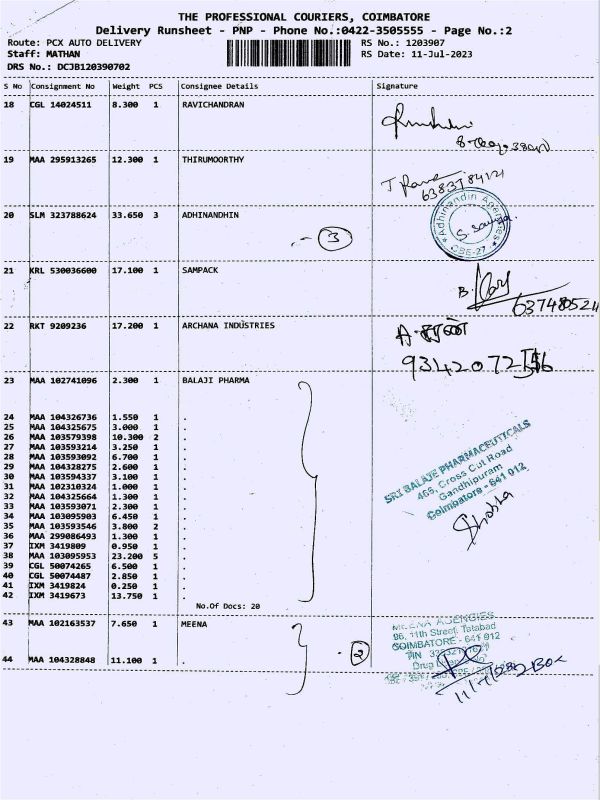 THE PROFESSIONAL COURIERS, COIMBATORE
Delivery Runsheet - PNP - Phone No.:0422-3505555 - Page No.:2
Route: PCX AUTO DELIVERY RS No.: 1203907
Staff: MATHAN RS Date: 11-Jul-2023
DRS No.: DCJB120390702
S No Consignment No Weight PCS Consignee Details Signature
18 CGL 14024511 8.300 1 RAVICHANDRAN
19 MAA 295913265 12.300 1 THIRUMOORTHY
6383784121
20 SLM 323788624 33.650 3 ADHINANDHIN
3
Adhinandin Agencies
CBE-27
21 KRL 530036600 17.100 1 SAMPACK
B.
637480524
22 RKT 9209236 17.200 1 ARCHANA INDUSTRIES
23 MAA 102741096 2.300 1 BALAJI PHARMA
24 MAA 104326736 1.550 1 .
25 MAA 104325675 3.000 1 .
26 MAA 103579398 10.300 2 .
27 MAA 103593214 3.250 1 .
28 MAA 103593092 6.700 1 .
29 MAA 104328275 2.600 1 .
30 MAA 103594337 3.100 1 .
31 MAA 102310324 1.000 1 .
32 MAA 104325664 1.300 1 .
33 MAA 103593071 2.300 1 .
34 MAA 103095903 6.450 1 .
35 MAA 103593546 3.800 2 .
36 MAA 299086493 1.300 1 .
37 IXM 3419809 0.950 1 .
38 MAA 103095953 23.200 5 .
39 CGL 50074265 6.500 1 .
40 CGL 50074487 2.850 1 .
41 IXM 3419824 0.250 1 .
42 IXM 3419673 13.750 1 .
No.Of Docs: 20
SRI BALAJE PHARMACEUTICALS
466, Cross Cut Road
Gandhipuram
Coimbatore - 641 012
Shobha
43 MAA 102163537 7.650 1 MEENA
MEENA AGENCIES
96, 11th Street, Tatabad
COIMBATORE - 641 012
44 MAA 104328848 11.100 1 .
2